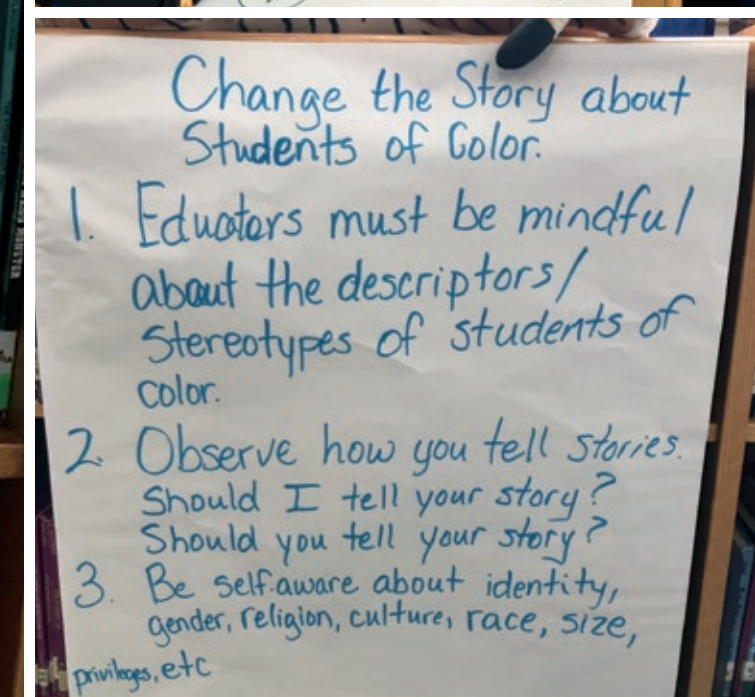 Change the Story about
Students of Color.
1. Eduators must be mindful
about the descriptors/
Stereotypes of students of
color.
2. Observe how you tell stories.
Should I tell your story?
Should you tell your story?
3. Be self.aware about identity,
gender, religion, culture, race, size,
privileges, etc